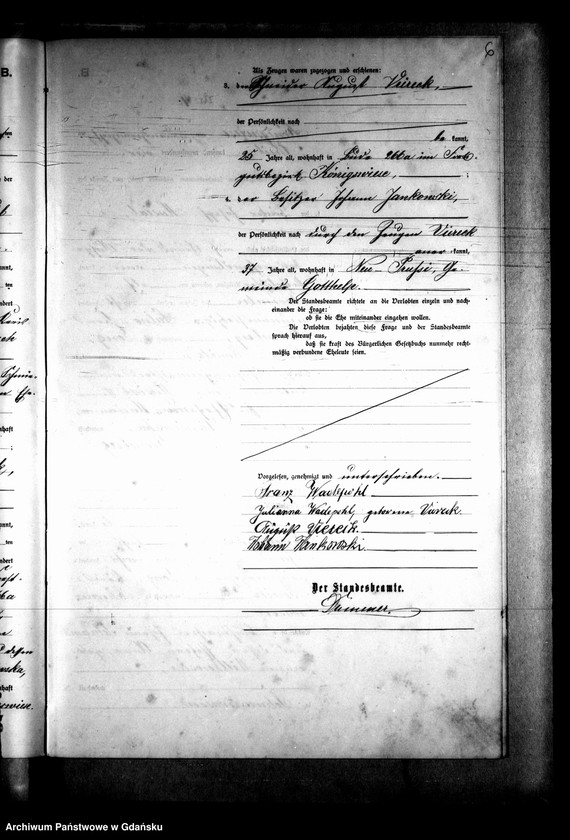 6
B.
Als Zeugen waren zugezogen und erschienen:
3. der Schneider August Viereck,
der Persönlichkeit nach
be kannt,
25 Jahre alt, wohnhaft in im Forst-
gutsbezirk Königswiese,
4. der Besitzer Johann Jankowski,
der Persönlichkeit nach durch den Zeugen Viereck
aner kannt,
37 Jahre alt, wohnhaft in Neu- Ge-
meinde Gotthelp.
Der Standesbeamte richtete an die Verlobten einzeln und nach-
einander die Frage:
ob sie die Ehe miteinander eingehen wollen.
Die Verlobten bejahten diese Frage und der Standesbeamte
sprach hierauf aus,
daß sie kraft des Bürgerlichen Gesetzbuchs nunmehr recht-
mäßig verbundene Eheleute seien.
Vorgelesen, genehmigt und unterschrieben.
Franz Wadepohl
Julianna Wadepohl, geborene Viereck
August Viereck
Johann Jankowski.
Der Standesbeamte.
Archiwum Państwowe w Gdańsku